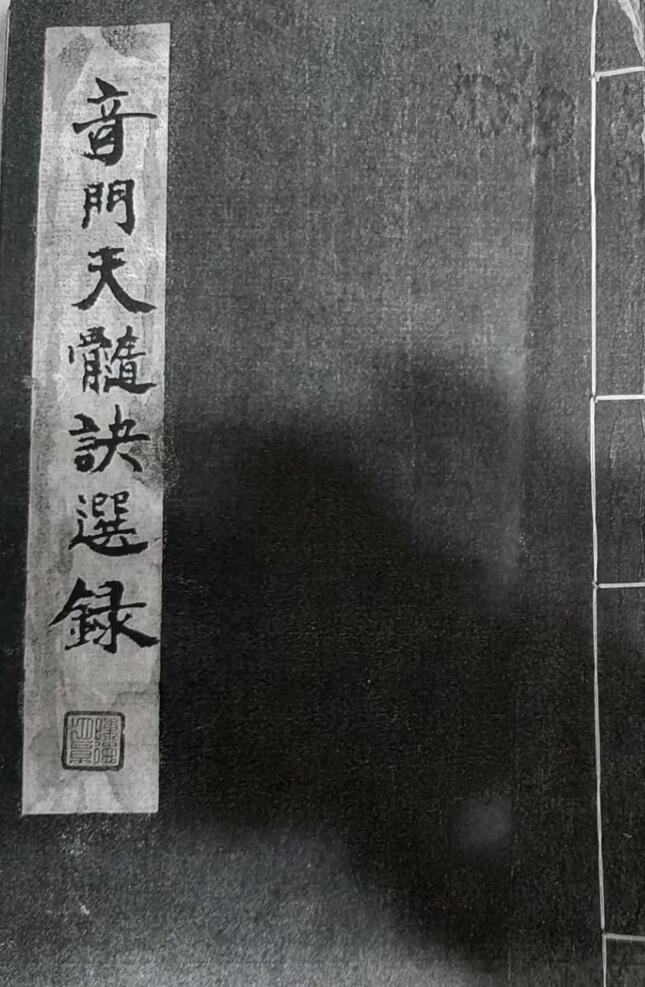 音門天髓訣選録